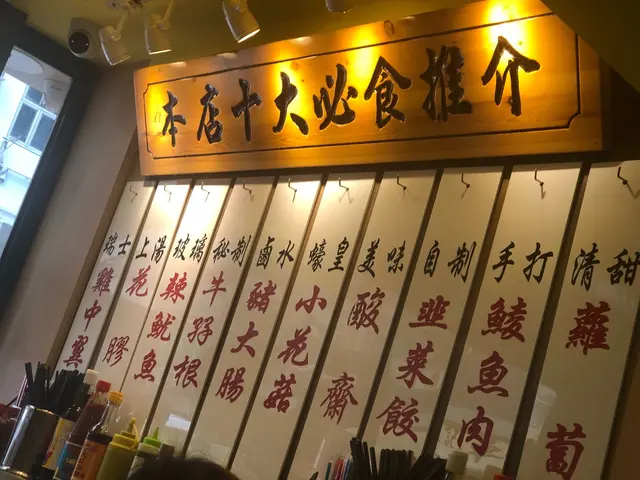 本店十大必食推介
瑞士
雞中翼
上湯
花膠
玻璃
辣魷魚
秘制
牛孖根
鹵水
豬大腸
蠔皇
小花菇
美味
酸齋
自制
韭菜餃
手打
鯪魚肉
清甜
蘿蔔